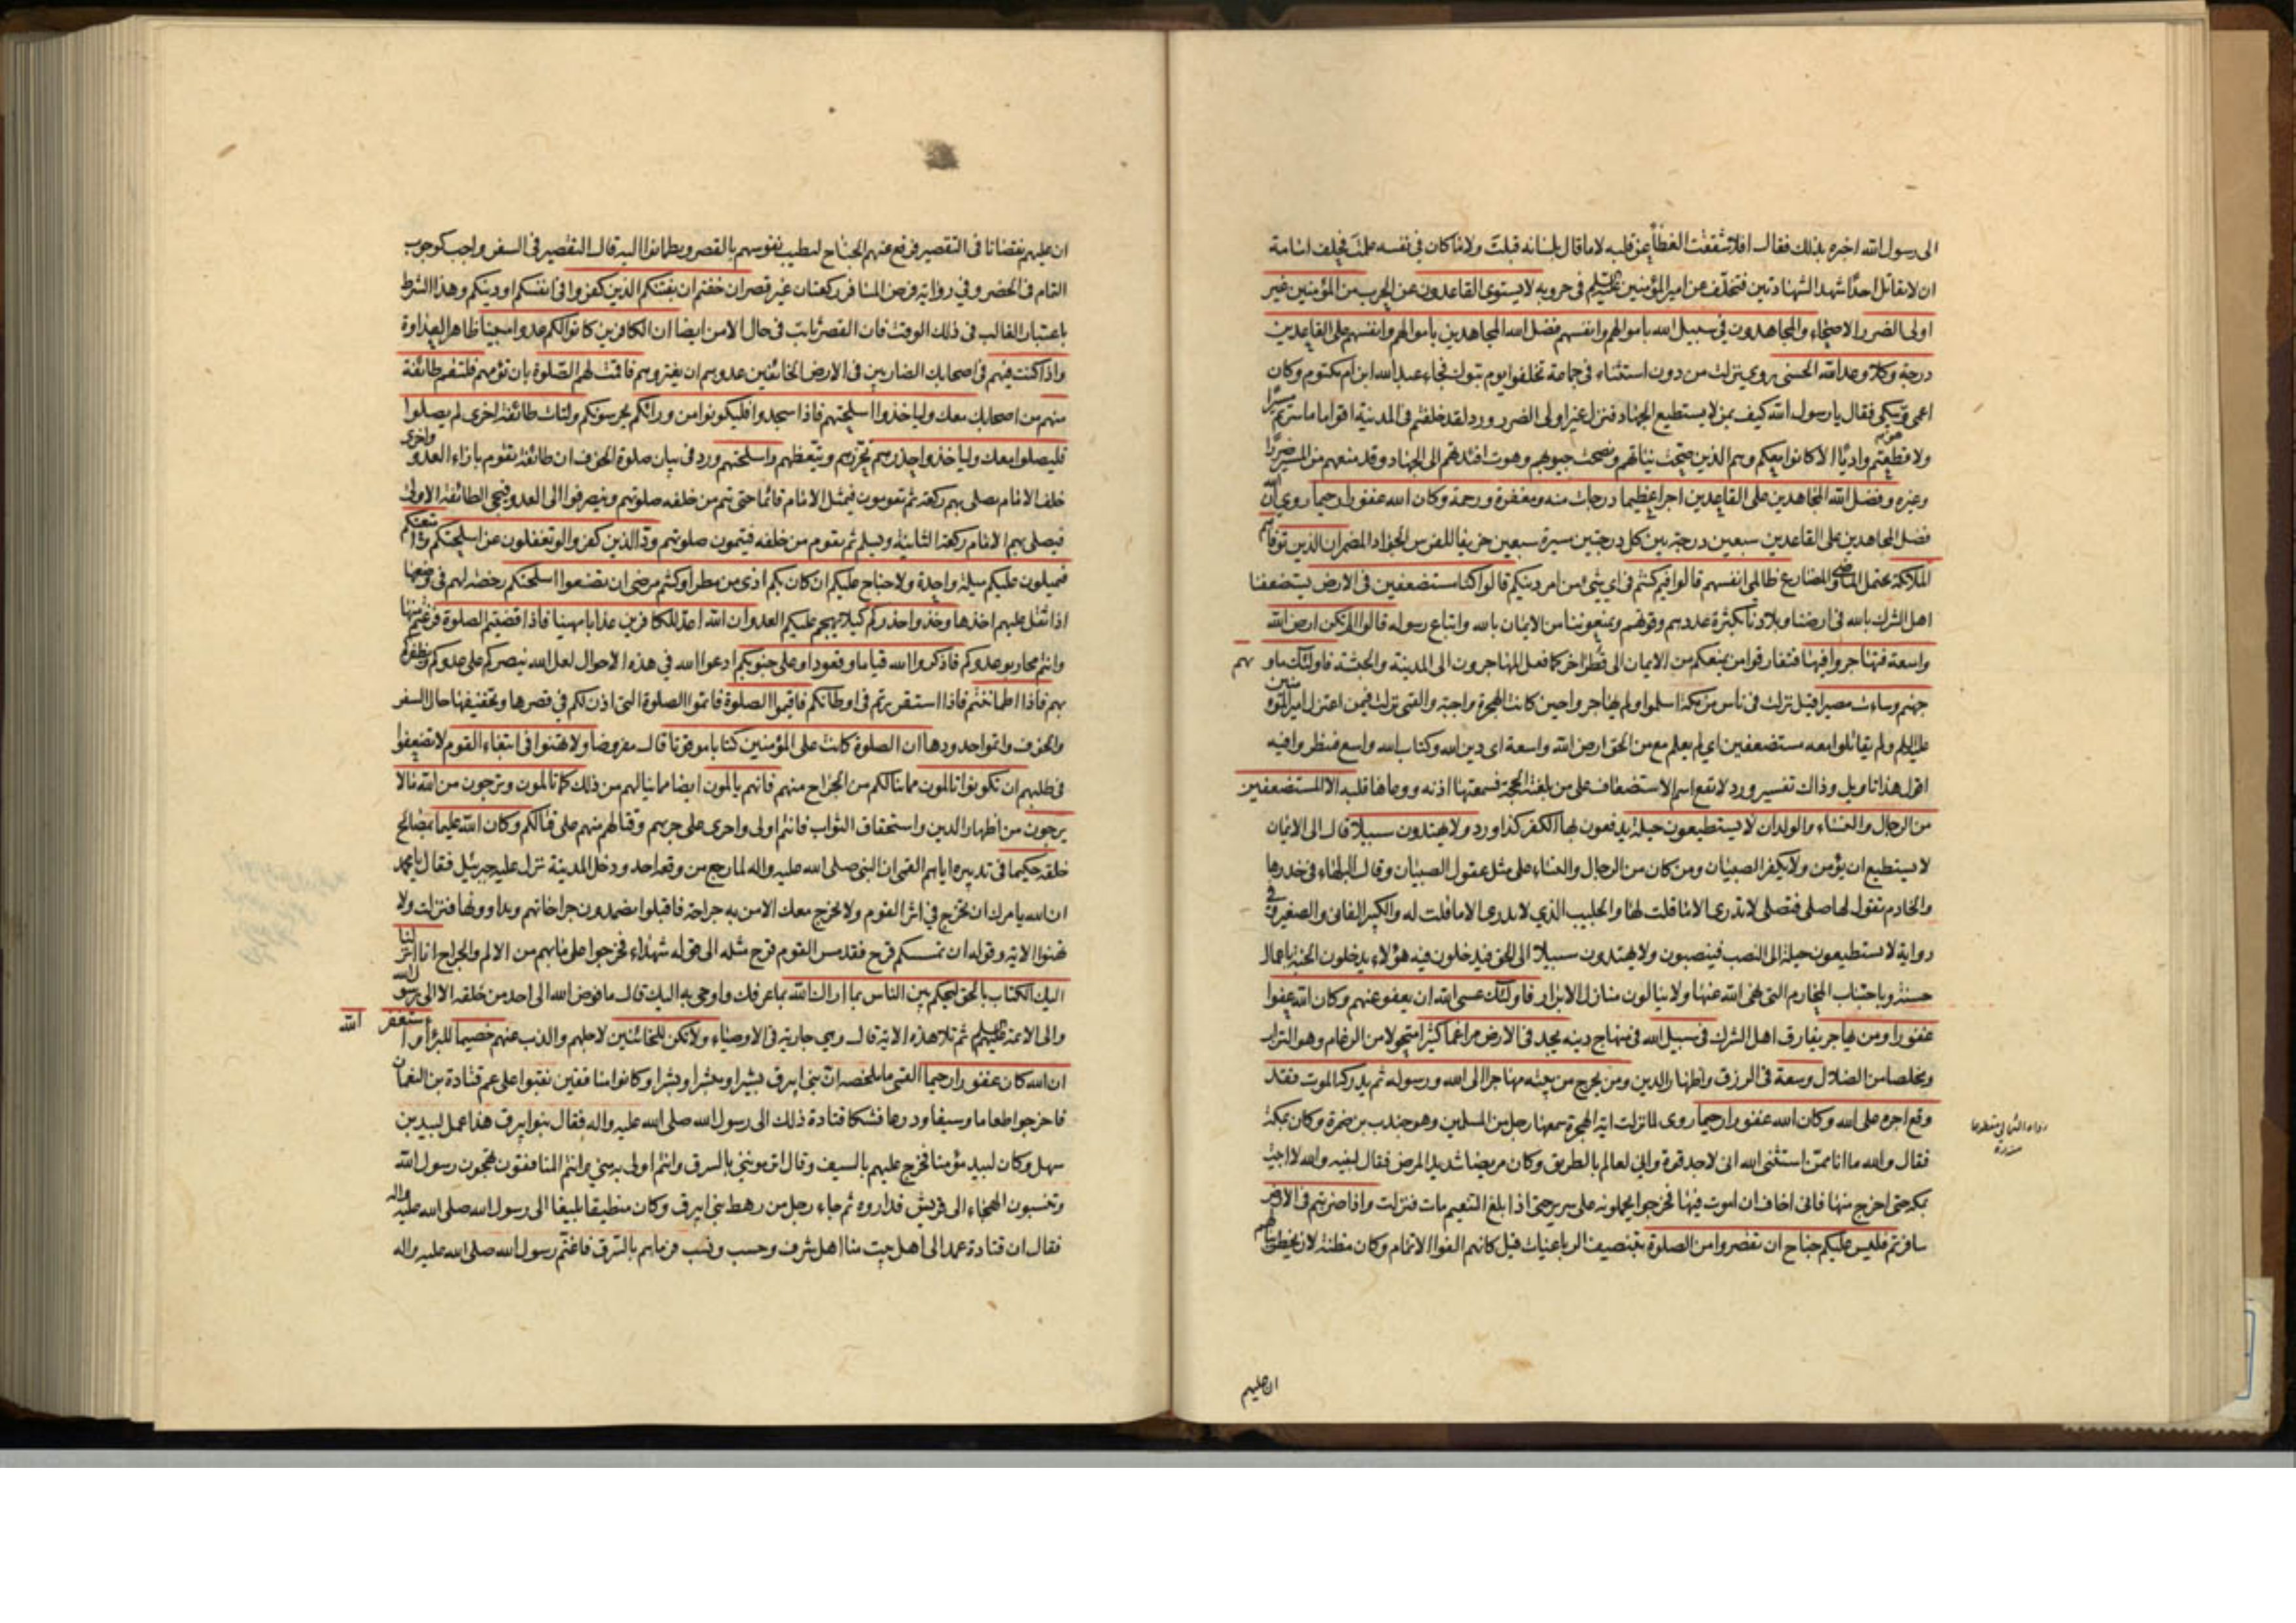 الى رسول الله اخبره بذلك فقال افلا شققت الغطاء عن قلبه لا ما قال بلسانه قبلت ولا ما كان في نفسه علمت فحلف اسامة
ان لا يقاتل احدا شهد الشهادتين فتخلف عن امير المؤمنين عليه السلم في حروبه لا يستوى القاعدون عن الحرب من المؤمنين غير
اولى الضرر الاصحاء والمجاهدون في سبيل الله باموالهم وانفسهم فضل الله المجاهدين باموالهم وانفسهم على القاعدين
درجة وكلا وعد الله الحسنى روى نزلت من دون استثناء في جماعة تخلفوا يوم تبوك فجاء عبد الله ابن ام مكتوم وكان
اعمى وبكى فقال يا رسول الله كيف بمن لا يستطيع الجهاد فنزل غير اولى الضرر ورد لقد خلفتم في المدينة اقواما ما سرتم مسيرا
ولا قطعتم واديا الا كانوا معكم وهم الذين صحت نياتهم ونصحت جيوبهم وهوت افئدتهم الى الجهاد وقد منعهم من المسير ضرر او
وغيره وفضل الله المجاهدين على القاعدين اجرا عظيما درجات منه ومغفرة ورحمة وكان الله غفورا رحيما روى ان الله
فضل المجاهدين على القاعدين سبعين درجة بين كل درجتين مسيرة سبعين خريفا للفرس الجواد المضمر ان الذين توفاهم
الملائكة يحتمل الماضى والمضارع ظالمى انفسهم قالوا فيم كنتم في اى شئ من امر دينكم قالوا كنا مستضعفين في الارض يستضعفنا
اهل الشرك بالله في ارضنا وبلادنا بكثرة عددهم وقوتهم ويمنعوننا من الايمان بالله واتباع رسوله قالوا الم تكن ارض الله
واسعة فتهاجروا فيها فتفارقوا من يمنعكم من الايمان الى قطر اخر كما فعل المهاجرون الى المدينة والحبشة فاولئك ماويهم
جهنم وساءت مصيرا قيل نزلت في ناس من مكة اسلموا ولم يهاجروا حين كانت الهجرة واجبة والقمى نزلت فيمن اعتزل امير المؤمنين
عليه السلم ولم يقاتلوا معه مستضعفين اى لم يعلم مع من الحق ارض الله واسعة اى دين الله وكتاب الله واسع فينظروا فيه
اقول هذا تاويل وذاك تفسير ورد لا يقع اسم الاستضعاف على من بلغته الحجة فسمعتها اذنه ووعاها قلبه الا المستضعفين
من الرجال والنساء والولدان لا يستطيعون حيلة يدفعون بها الكفر كذا ورد ولا يهتدون سبيلا قال الى الايمان
لا يستطيع ان يؤمن ولا يكفر الصبيان ومن كان من الرجال والنساء على مثل عقول الصبيان وقال البلهاء في خدرها
والخادم تقول لها صلى فتصلى لا تدرى الا ما قلت لها والجليب الذي لا يدرى الا ما قلت له والكبير الفانى والصغير وفي
رواية لا يستطيعون حيلة الى النصب فينصبون ولا يهتدون سبيلا الى الحق فيدخلون فيه هؤلاء يدخلون الجنة باعمال
حسنة وباجتناب المحارم التى نهى الله عنها ولا ينالون منازل الابرار فاولئك عسى الله ان يعفو عنهم وكان الله عفوا
غفورا ومن يهاجر يفارق اهل الشرك في سبيل الله في منهاج دينه يجد في الارض مراغما كثيرا متحولا من الرغام وهو التراب
ومخلصا من الضلال وسعة في الرزق واظهار الدين ومن يخرج من بيته مهاجرا الى الله ورسوله ثم يدركه الموت فقد
وقع اجره على الله وكان الله غفورا رحيما روى لما نزلت اية الهجرة سمعها رجل من المسلمين وهو جندب بن ضمرة وكان بمكة
فقال والله ما انا ممن استثنى الله انى لاجد قوة وانى لعالم بالطريق وكان مريضا شديد المرض فقال لبنيه والله لا ابيت
بمكة حتى اخرج منها فانى اخاف ان اموت فيها فخرجوا يحملونه على سرير حتى اذا بلغ التنعيم مات فنزلت واذا ضربتم في الارض
سافرتم فليس عليكم جناح ان تقصروا من الصلوة بتنصيف الرباعيات قيل كانهم الفوا الاتمام وكان مظنة لان يخطر ببالهم
ان عليهم
ان عليهم نقصانا في التقصير فرفع عنهم الجناح لتطيب نفوسهم بالقصر ويطمانوا اليه قال التقصير في السفر واجب كوجوب
التمام في الحضر وفي رواية فرض المسافر ركعتان غير قصر ان خفتم ان يفتنكم الذين كفروا في انفسكم او دينكم وهذا الشرط
باعتبار الغالب في ذلك الوقت فان القصر ثابت في حال الامن ايضا ان الكافرين كانوا لكم عدوا مبينا ظاهر العداوة
واذا كنت فيهم في اصحابك الضاربين في الارض الخائفين عدوهم ان يغتروهم فاقمت لهم الصلوة بان تؤمهم فلتقم طائفة
منهم من اصحابك معك ولياخذوا اسلحتهم فاذا سجدوا فليكونوا من ورائكم يحرسونكم ولتات طائفة اخرى لم يصلوا
فليصلوا معك ولياخذوا حذرهم تحرزهم وتيقظهم واسلحتهم ورد في بيان صلوة الخوف ان طائفة تقوم بازاء العدو واخرى
خلف الامام يصلى بهم ركعة ثم تقومون فيمثل الامام قائما حتى يتم من خلفه صلوتهم وينصرفوا الى العدو فيجى الطائفة الاولى
فيصلى بهم الامام ركعة الثانية ويسلم ثم يقوم من خلفه فيتمون صلوتهم ود الذين كفروا لو تغفلون عن اسلحتكم وامتعتكم
فيميلون عليكم ميلة واحدة ولا جناح عليكم ان كان بكم اذى من مطر او كنتم مرضى ان تضعوا اسلحتكم رخصة لهم في وضعها
اذا ثقل عليهم اخذها وخذوا حذركم كيلا يهجم عليكم العدو ان الله اعد للكافرين عذابا مهينا فاذا قضيتم الصلوة فرغتم منها
وانتم محاربو عدوكم فاذكروا الله قياما وقعودا وعلى جنوبكم ادعوا الله في هذه الاحوال لعل الله ينصركم على عدوكم ويظفركم
بهم فاذا اطماننتم فاذا استقررتم في اوطانكم فاقيموا الصلوة فاتموا الصلوة التى اذن لكم في قصرها وتخفيفها حال السفر
والخوف واتموا حدودها ان الصلوة كانت على المؤمنين كتابا موقوتا قال مفروضا ولا تهنوا في ابتغاء القوم لا تضعفوا
في طلبهم ان تكونوا تالمون مما ينالكم من الجراح منهم فانهم يالمون ايضا مما ينالهم من ذلك كما تالمون وترجون من الله ما لا
يرجون من اظهار الدين واستحقاق الثواب فانتم اولى واحرى على حربهم وقتالهم منهم على قتالكم وكان الله عليما بمصالح
خلقه حكيما في تدبيره اياهم القمى ان النبى صلى الله عليه واله لما رجع من وقعة احد ودخل المدينة نزل عليه جبرئيل فقال يا محمد
ان الله يامرك ان تخرج في اثر القوم ولا يخرج معك الا من به جراحة فاقبلوا يضمدون جراحاتهم ويداوونها فنزلت ولا
تهنوا الاية وقوله ان يمسسكم قرح فقد مس القوم قرح مثله الى قوله شهداء فخرجوا على ما بهم من الالم والجراح انا انزلنا
اليك الكتاب بالحق لتحكم بين الناس بما اراك الله بما عرفك واوحى به اليك قال ما فوض الله الى احد من خلقه الا الى رسول الله
والى الائمة عليهم السلم ثم تلا هذه الاية قال وهي جارية في الاوصياء ولا تكن للخائنين لاجلهم والذب عنهم خصيما للبرآء واستغفر الله
ان الله كان غفورا رحيما القمى ما ملخصه ان بنى ابيرق بشيرا ومبشرا وبشرا وكانوا منافقين نقبوا على عم قتادة بن النعمان
فاخرجوا طعاما وسيفا ودرعا فشكا قتادة ذلك الى رسول الله صلى الله عليه واله فقال بنوا ابيرق هذا عمل لبيد بن
سهل وكان لبيد مؤمنا فخرج عليهم بالسيف وقال اترموننى بالسرق وانتم اولى به منى وانتم المنافقون تهجون رسول الله
وتنسبون الهجاء الى قريش فداروه ثم جاء رجل من رهط بنى ابيرق وكان منطيقا بليغا الى رسول الله صلى الله عليه واله
فقال ان قتادة عمد الى اهل بيت منا اهل شرف وحسب ونسب فرماهم بالسرق فاغتم رسول الله صلى الله عليه واله